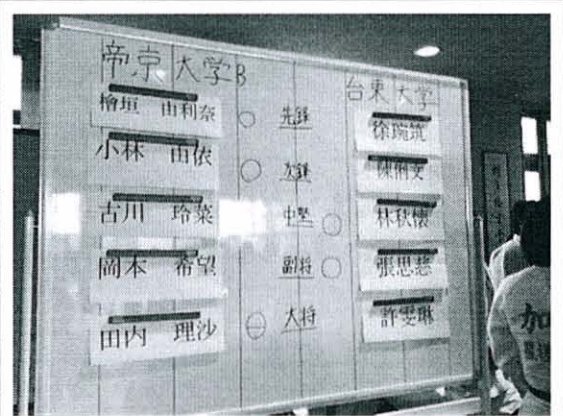 帝京大学B 台東大学
檜垣 由利奈 ○ 先鋒 徐琬筑
小林 由依 ○ 次鋒 陳俐文
古川 玲菜 中堅 ○ 林秋懐
岡本 希望 副将 ○ 張思慈
田内 理沙 大将 許雯琳
加